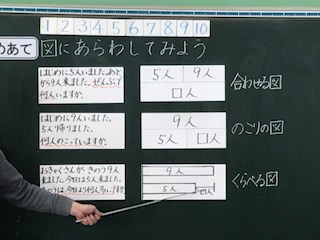 1 2 3 4 5 6 7 8 9 10
めあて
図にあらわしてみよう
はじめに5人いました。あと
から9人来ました。ぜんぶで
何人いますか。
5人 9人
□人
合わせる図
はじめに9人いました。
5人帰りました。
何人のこっていますか。
9人
5人 □人
のこりの図
おきゃくさんが、きのう9人
来ました。今日は5人来ました。
きのうは今日より何人多いですか。
9人
5人 □人
くらべる図